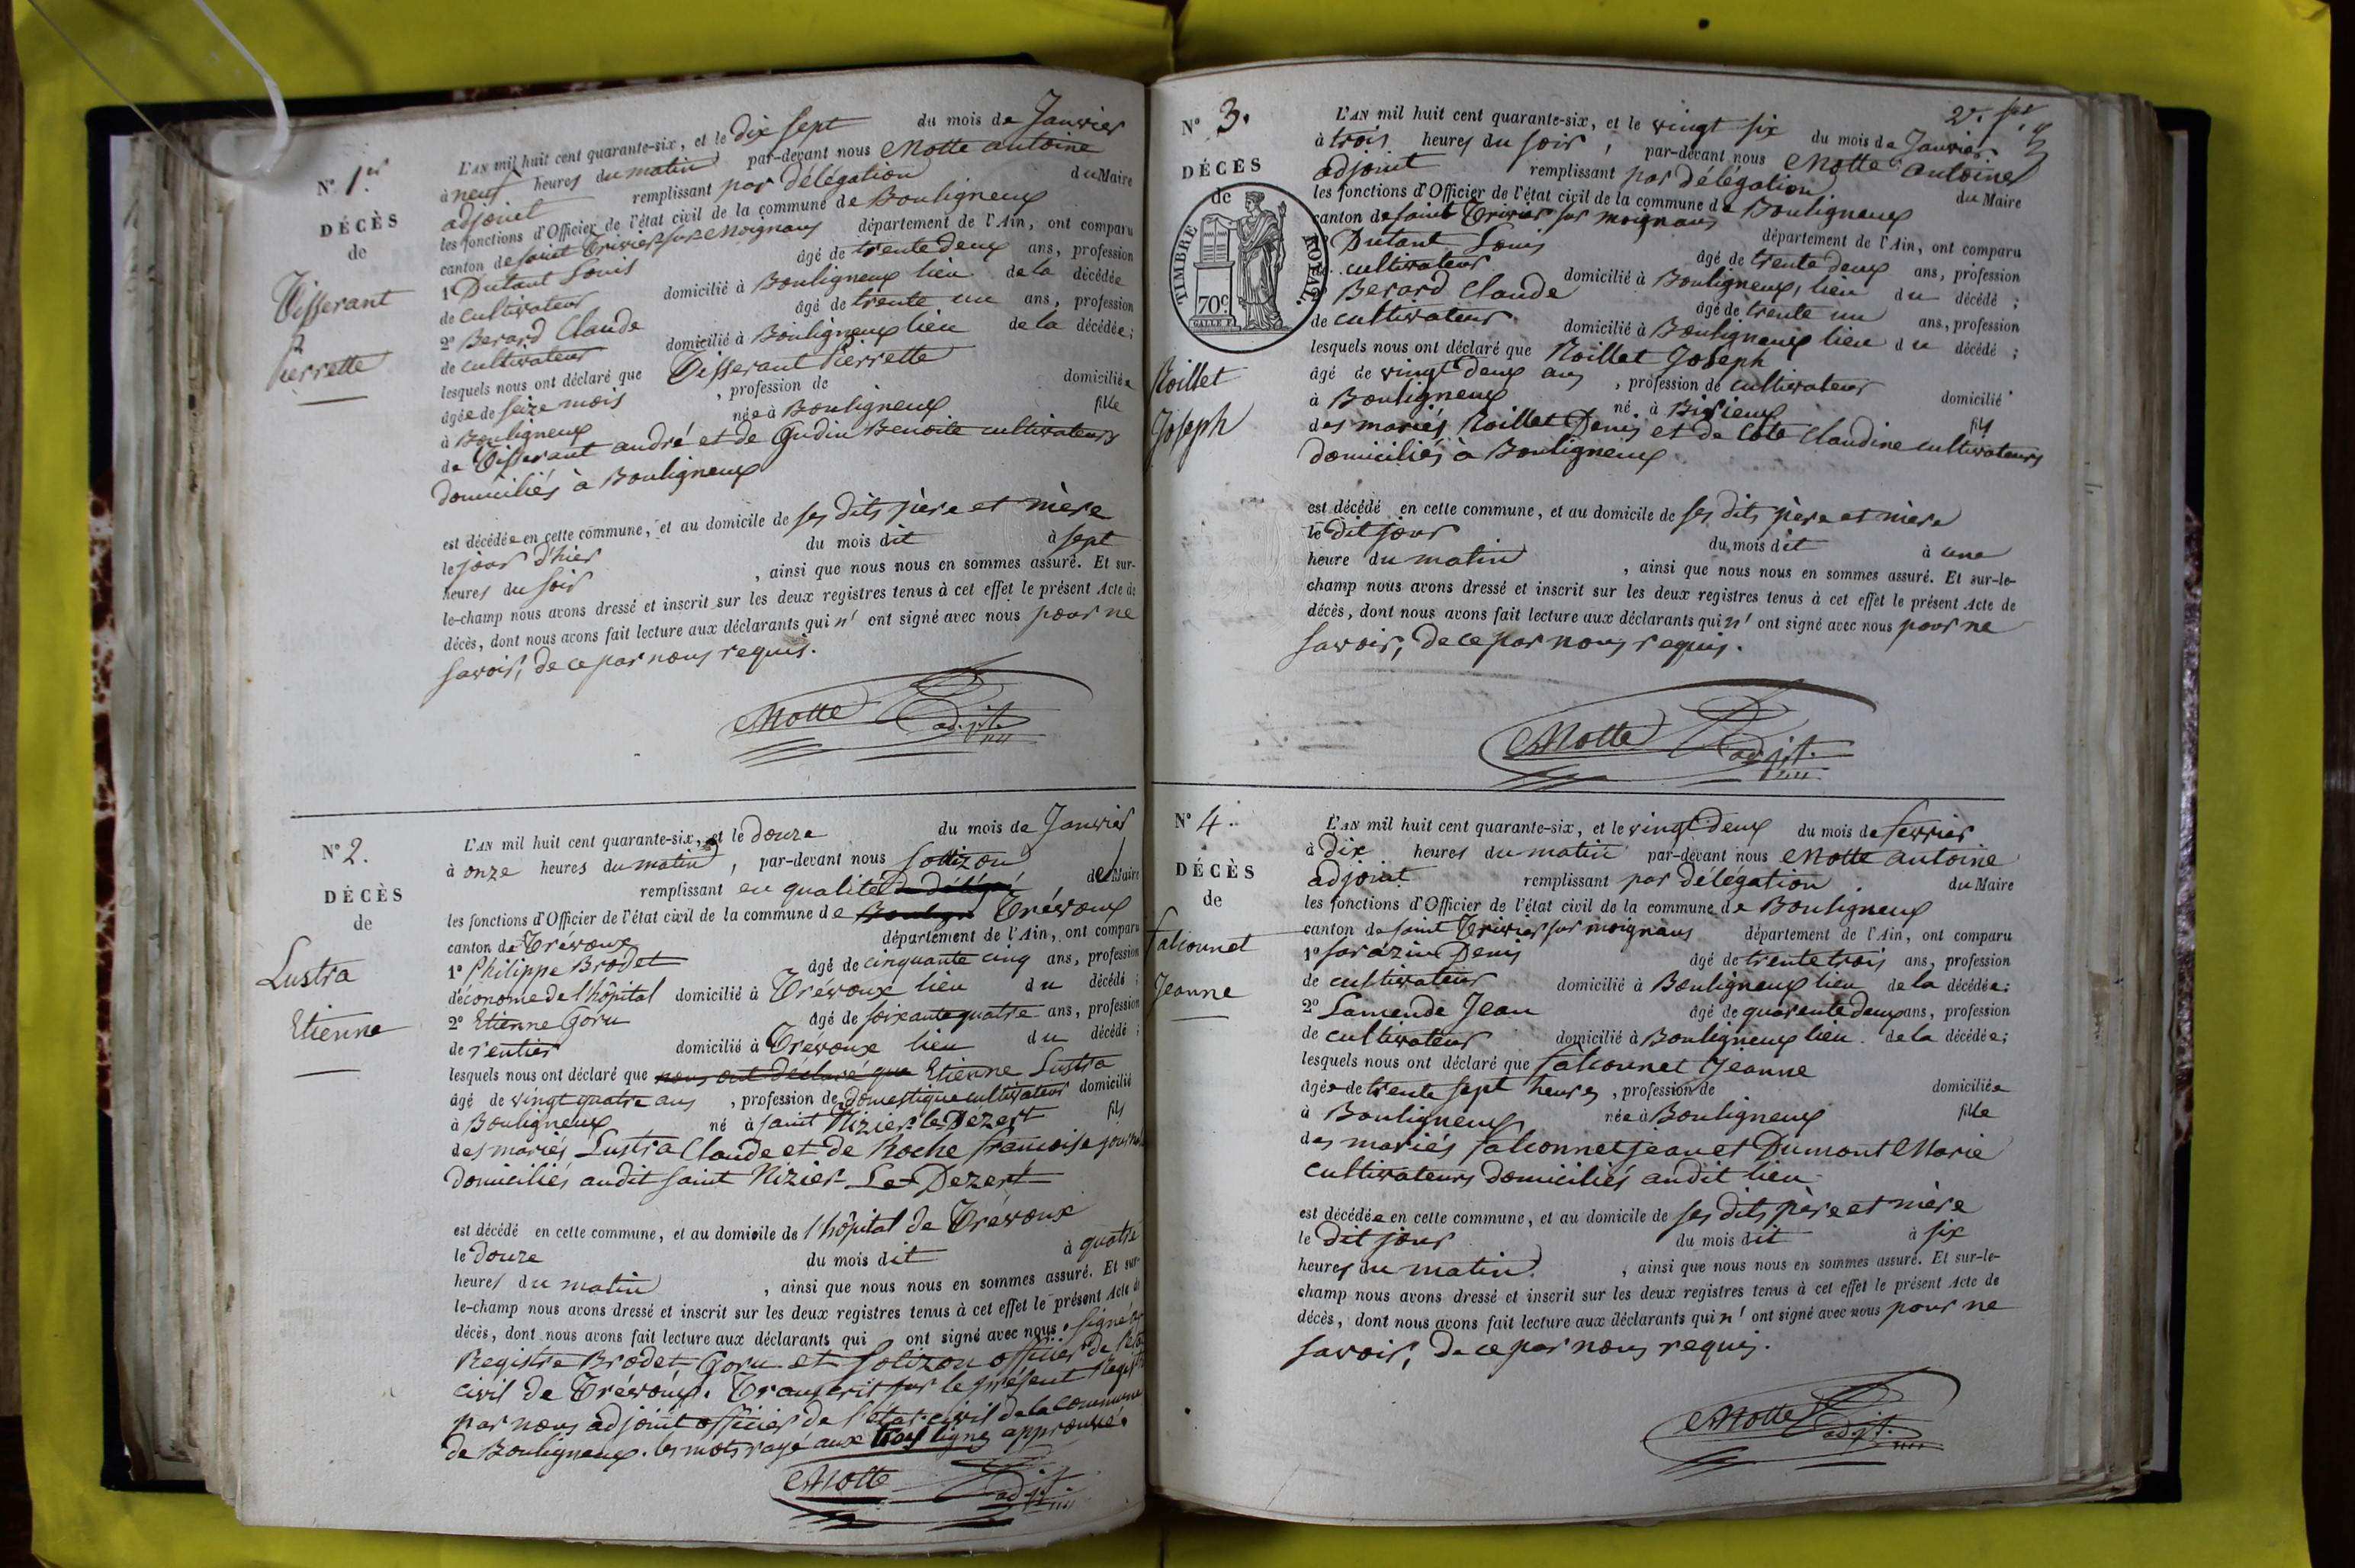 N° 1er
DÉCÈS
de
Tisserant
Pierrette
L'AN mil huit cent quarante-six, et le dix sept du mois de Janvier
à neuf heures du matin par-devant nous Motte antoine
adjoint remplissant par délégation du Maire
les fonctions d'Officier de l'état civil de la commune de Bouligneux
canton de saint Trivier sur Moignans département de l'Ain, ont comparu
1 Dutant Louis âgé de trente deux ans, profession
de cultivateur domicilié à Bouligneux lieu de la décédée
2° Berard Claude âgé de trente un ans, profession
de cultivateur domicilié à Bouligneux lieu de la décédée;
lesquels nous ont déclaré que Tisserant Pierrette
âgée de seize mois , profession de domiciliée
à Bouligneux née à Bouligneux fille
de Tisserant andré et de Gudin Benoite cultivateurs
domiciliés à Bouligneux
est décédée en cette commune, et au domicile de ses dits père et mère
le jour d'hier du mois dit à sept
heures du soir , ainsi que nous nous en sommes assuré. Et sur-
le-champ nous avons dressé et inscrit sur les deux registres tenus à cet effet le présent Acte de
décès, dont nous avons fait lecture aux déclarants qui n' ont signé avec nous pour ne
savoir, de ce par nous requis.
Motte adjt
N° 2.
DÉCÈS
de
Lustra
Etienne
L'AN mil huit cent quarante-six, et le douze du mois de Janvier
à onze heures du matin, par-devant nous Sollizon
remplissant en qualité de délégué de Maire
les fonctions d'Officier de l'état civil de la commune de Boulign Trévoux
canton de Trévoux département de l'Ain, ont comparu
1° Philippe Brodet âgé de cinquante cinq ans, profession
d'économe de l'hôpital domicilié à Trévoux lieu du décédé ;
2° Etienne Goru âgé de soixante quatre ans, profession
de rentier domicilié à Trévoux lieu du décédé ;
lesquels nous ont déclaré que nous ont déclaré que Etienne Lustra
âgé de vingt quatre ans , profession de domestique cultivateur domicilié
à Bouligneux né à saint Nizier le Dezert fils
des mariés Lustra Claude et de Roche francoise
domiciliés audit saint Nizier Le Dezert
est décédé en cette commune, et au domicile de l'hôpital de Trévoux
le douze du mois dit à quatre
heures du matin , ainsi que nous nous en sommes assuré. Et sur-
le-champ nous avons dressé et inscrit sur les deux registres tenus à cet effet le présent Acte de
décès, dont nous avons fait lecture aux déclarants qui ont signé avec nous. signé au
Registre Brodet Goru et Solizon officier de l'état
civil de Trévoux. Transcrit sur le présent Regist
par nous adjoint officier de l'état civil de la commune
de Bouligneux. les mots rayé aux trois lignes approuvé.
Motte adjt.
2e. fet
N° 3.
DÉCÈS
de
TIMBRE ROYAL.
70c
Roillet
Joseph
L'AN mil huit cent quarante-six, et le vingt six du mois de Janvier
à trois heures du soir , par-devant nous Motte antoine
adjoint remplissant par délégation du Maire
les fonctions d'Officier de l'état civil de la commune de Bouligneux
canton de saint Trivier sur moignans département de l'Ain, ont comparu
Dutant Louis âgé de trente deux ans, profession
cultivateur domicilié à Bouligneux, lieu du décédé ;
Berard Claude âgé de trente un ans, profession
de cultivateur domicilié à Bouligneux lieu du décédé ;
lesquels nous ont déclaré que Roillet Joseph
âgé de vingt deux ans , profession de cultivateur domicilié
à Bouligneux né à Birieux fils
des mariés Roillet Denis et de Cote Claudine cultivateurs
domiciliés à Bouligneux
est décédé en cette commune, et au domicile de ses dits père et mère
le dit jour du mois dit à une
heure du matin , ainsi que nous nous en sommes assuré. Et sur-le-
champ nous avons dressé et inscrit sur les deux registres tenus à cet effet le présent Acte de
décès, dont nous avons fait lecture aux déclarants qui n' ont signé avec nous pour ne
savoir, de ce par nous requis.
Motte adjt.
N° 4.
DÉCÈS
de
falconnet
Jeanne
L'AN mil huit cent quarante-six, et le vingt deux du mois de fevrier
à dix heures du matin par-devant nous Motte antoine
adjoint remplissant par délégation du Maire
les fonctions d'Officier de l'état civil de la commune de Bouligneux
canton de saint Trivier sur moignans département de l'Ain, ont comparu
1° sarazin Denis âgé de trente trois ans, profession
de cultivateur domicilié à Bouligneux lieu de la décédée;
2° Lamende Jean âgé de quarente deux ans, profession
de cultivateur domicilié à Bouligneux lieu de la décédée;
lesquels nous ont déclaré que falconnet Jeanne
âgée de trente sept heures , profession de domiciliée
à Bouligneux née à Bouligneux fille
des mariés falconnet jean et Dumont Marie
cultivateurs domiciliés audit lieu
est décédée en cette commune, et au domicile de ses dits père et mère
le dit jour du mois dit à six
heures du matin. , ainsi que nous nous en sommes assuré. Et sur-le-
champ nous avons dressé et inscrit sur les deux registres tenus à cet effet le présent Acte de
décès, dont nous avons fait lecture aux déclarants qui n' ont signé avec nous pour ne
savoir, de ce par nous requis.
Motte adjt.